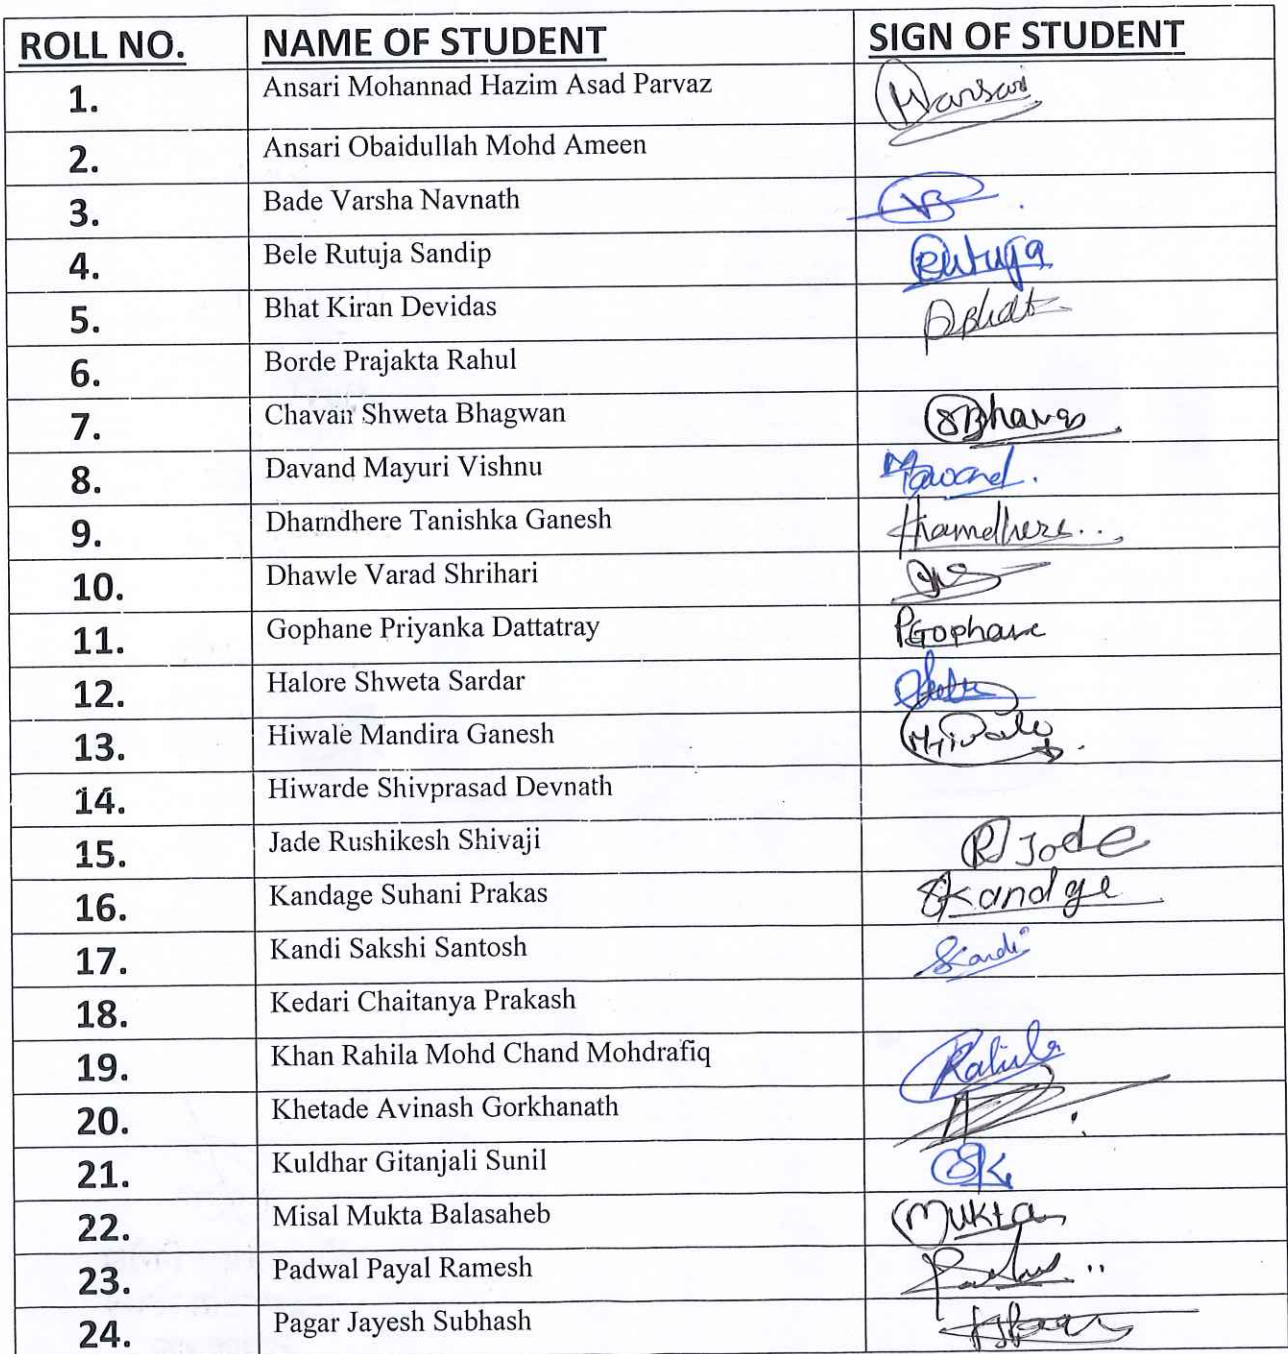 ROLL NO. NAME OF STUDENT SIGN OF STUDENT
1. Ansari Mohannad Hazim Asad Parvaz
2. Ansari Obaidullah Mohd Ameen
3. Bade Varsha Navnath
4. Bele Rutuja Sandip Rutuja
5. Bhat Kiran Devidas
6. Borde Prajakta Rahul
7. Chavan Shweta Bhagwan
8. Davand Mayuri Vishnu
9. Dhamdhere Tanishka Ganesh
10. Dhawle Varad Shrihari
11. Gophane Priyanka Dattatray PGophane
12. Halore Shweta Sardar
13. Hiwale Mandira Ganesh
14. Hiwarde Shivprasad Devnath
15. Jade Rushikesh Shivaji
16. Kandage Suhani Prakas Skandge
17. Kandi Sakshi Santosh Skandi
18. Kedari Chaitanya Prakash
19. Khan Rahila Mohd Chand Mohdrafiq Rahila
20. Khetade Avinash Gorkhanath
21. Kuldhar Gitanjali Sunil
22. Misal Mukta Balasaheb Mukta
23. Padwal Payal Ramesh
24. Pagar Jayesh Subhash